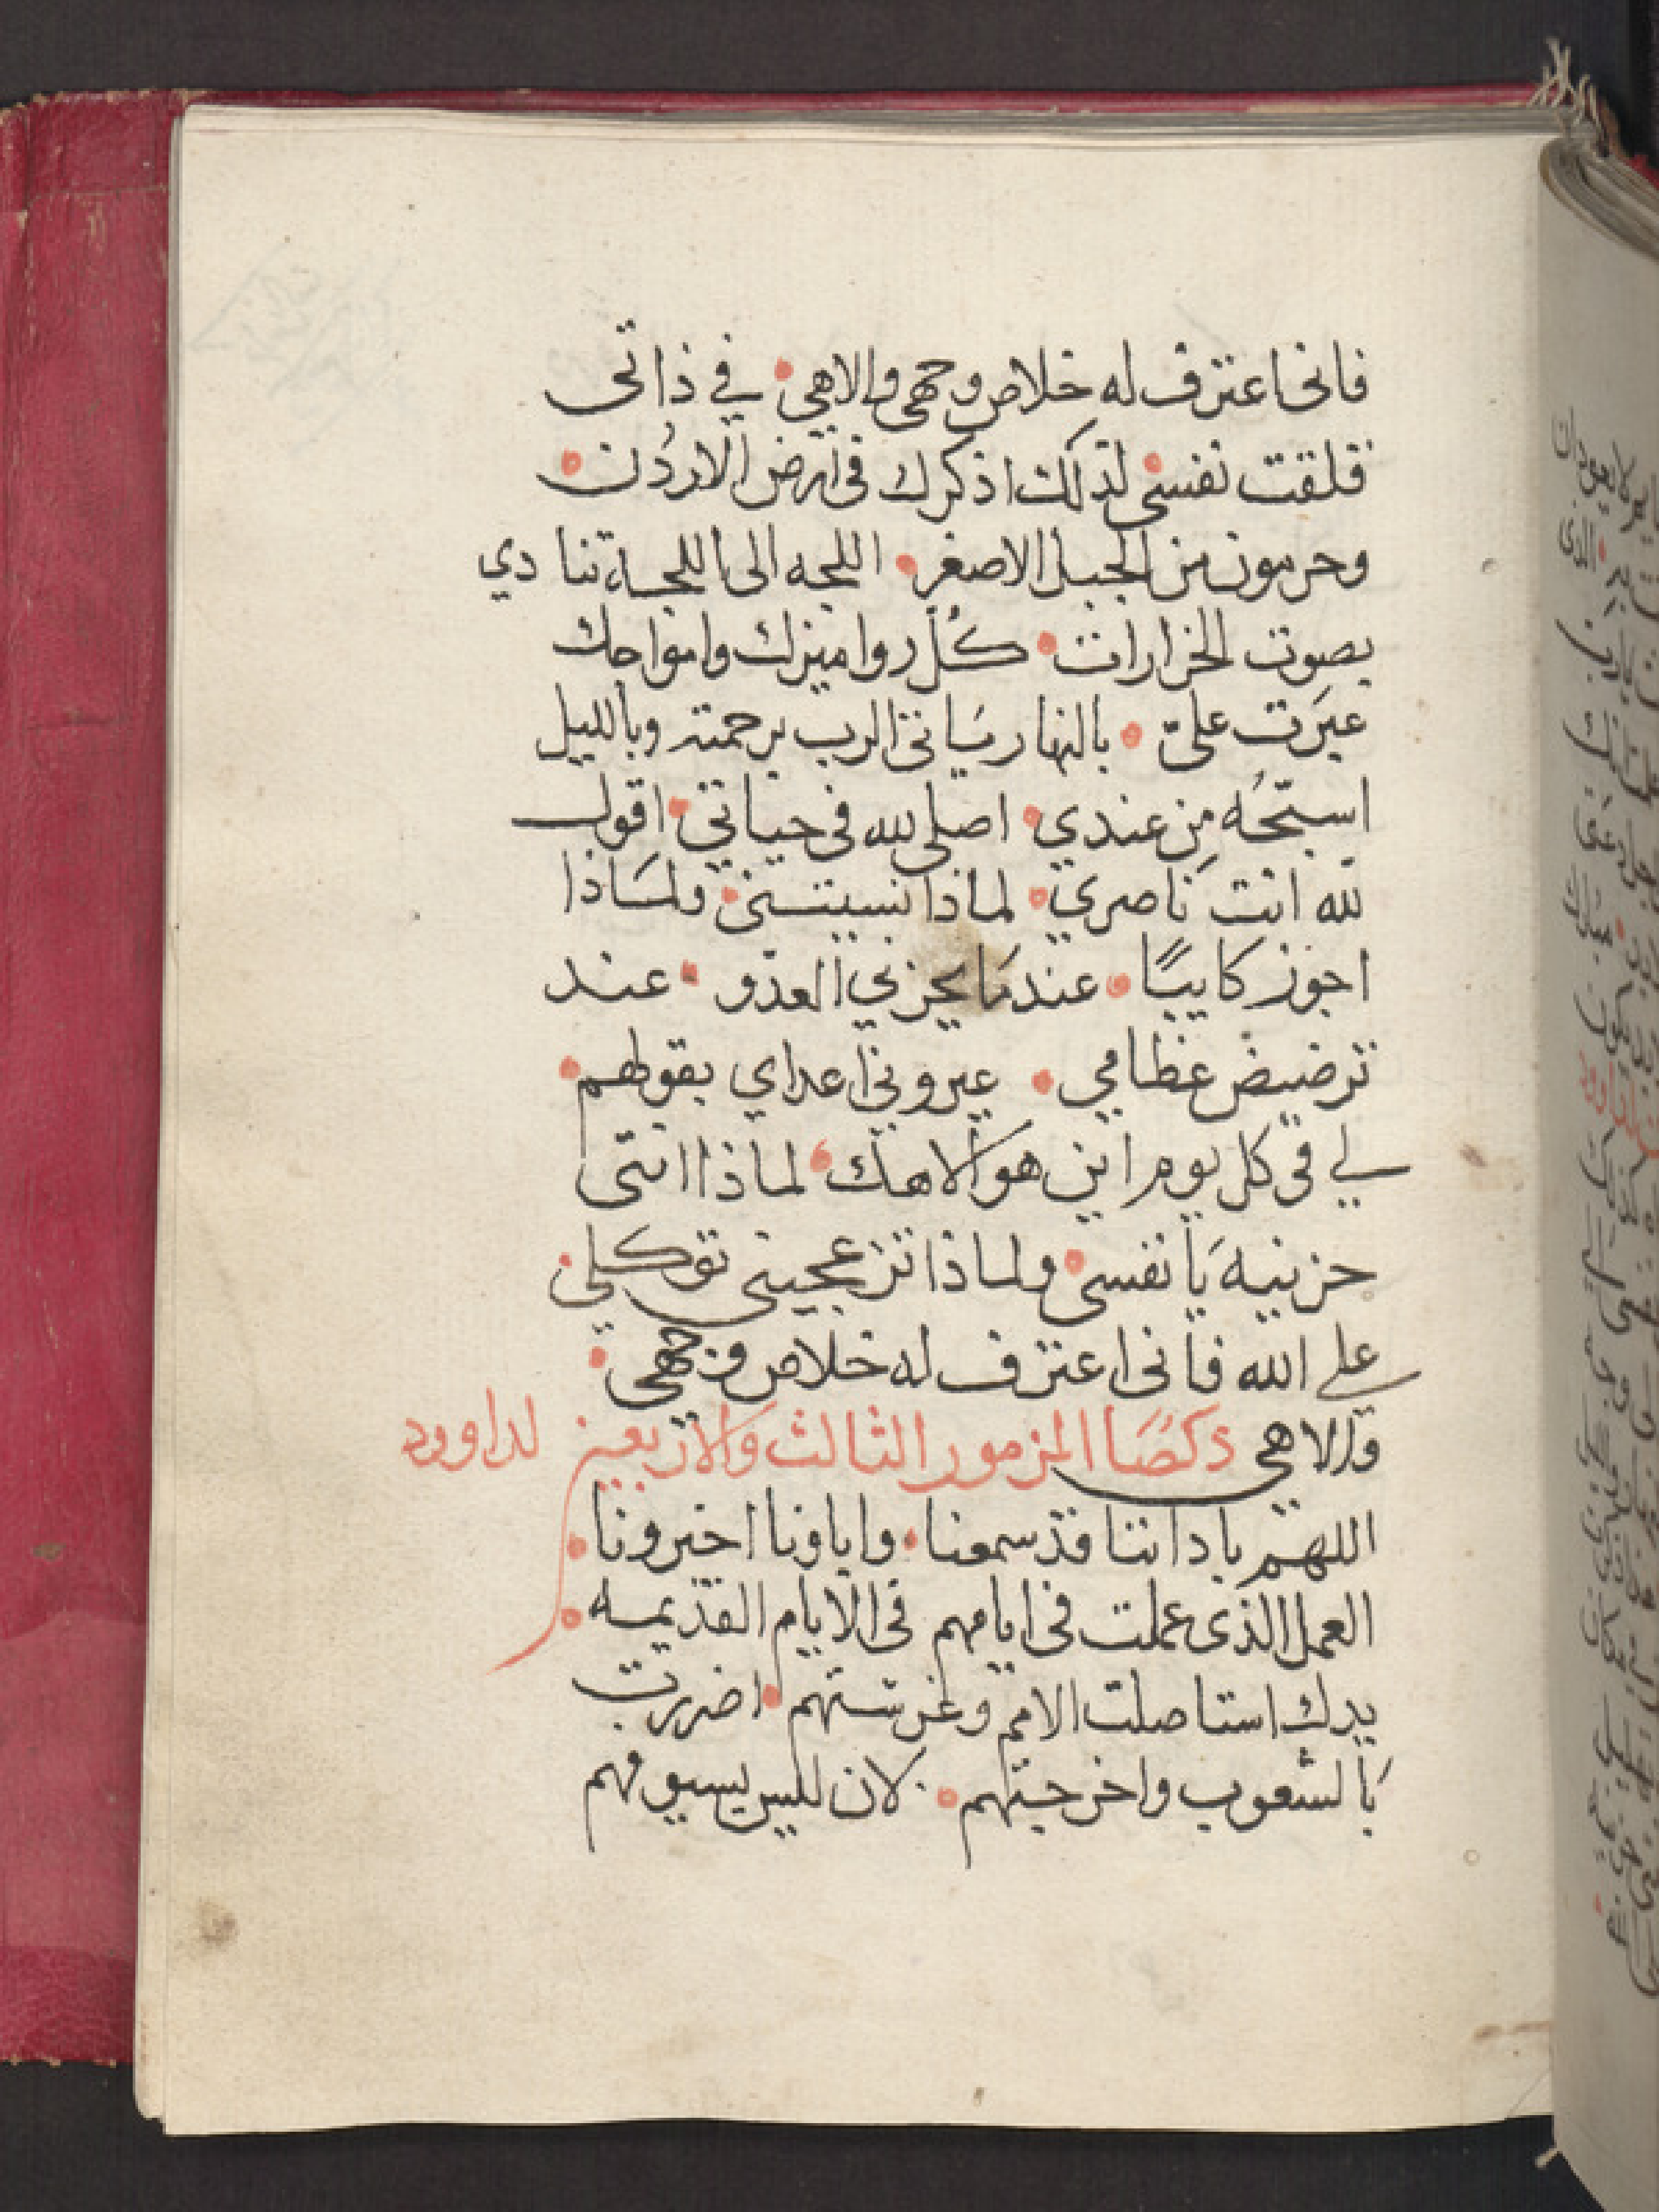 فانى اعترف له خلاص وجهى والاهي • في ذاتى
قلقت نفسي • لذلك اذكرك فى ارض الاردُن •
وحرمون من الجبل الاصغر • اللجه الى اللجة تنادي
بصوت الخرارات • كُلّ رواميزك وامواجك
عبَرت علىّ • بالنهار يَاتى الرب برحمته وبالليل
اسبّحُه مِن عندي • اصلى لله فى حياتي • اقول
لله انت نَاصري • لماذا نسيتنى • ولمَاذا
اجوز كايبًا • عندمَا يحزني العدّو • عند
ترضيض عظامي • عيروني اعداي بقولهم •
لي فى كل يوم اين هو الاهك • لماذا انتى
حزينه يَا نفسى • ولماذا تزعجينى توكلى •
على الله فانى اعترف له خلاص وجهى •
والاهي دكصَا المزمور الثالث والاربعين لداوود
اللهم باداننا قد سمعنا • واباونا اخبرونا •
العمل الذى عملت فى ايامهم فى الايام القديمه •
يدك استاصلت الامم وغرستهم • اضررت
بَالشعوب واخرجتهم • لان ليس بسيوفهم